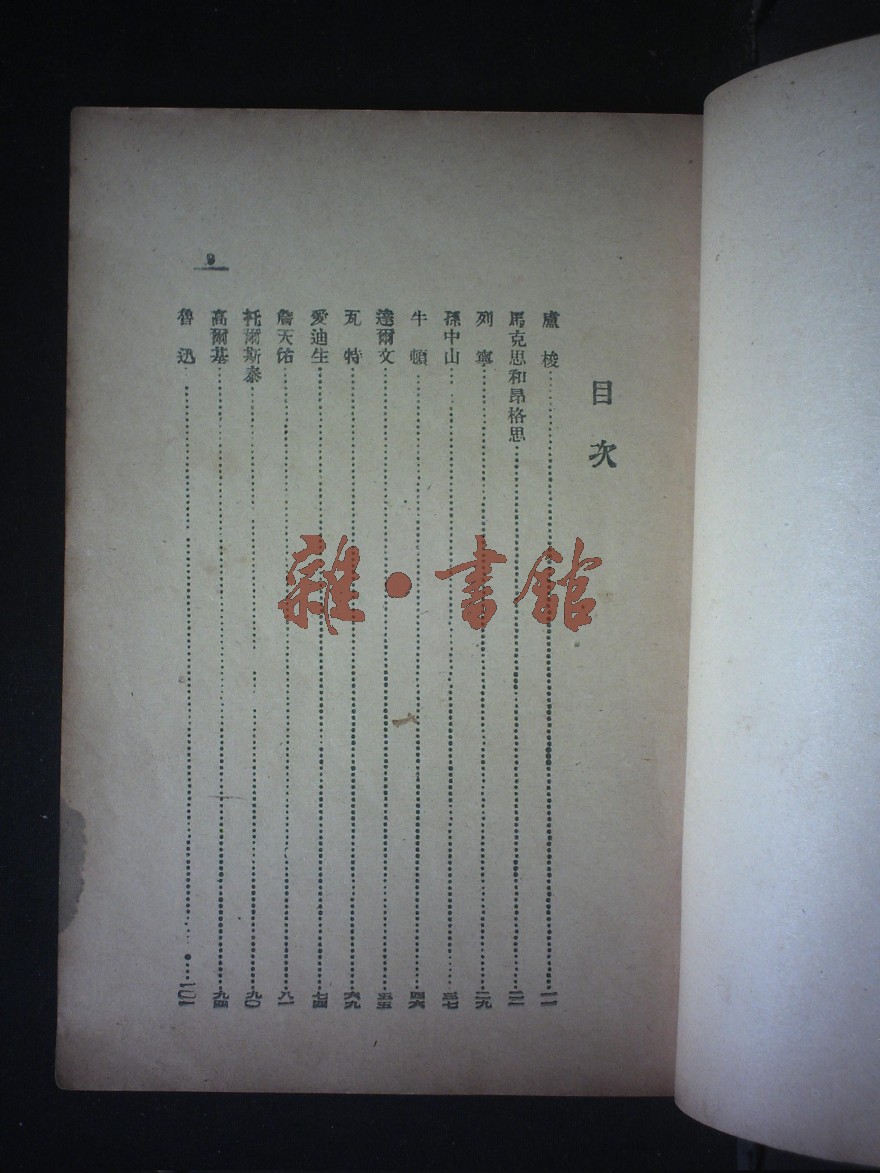 目次
盧梭……一一
馬克思和昂格思……
列寧……二九
孫中山……三七
牛頓……四六
達爾文……五五
瓦特……六九
愛迪生……七四
詹天佑……八一
托爾斯泰……九〇
高爾基……九四
魯迅……一〇一
9
雜·書館